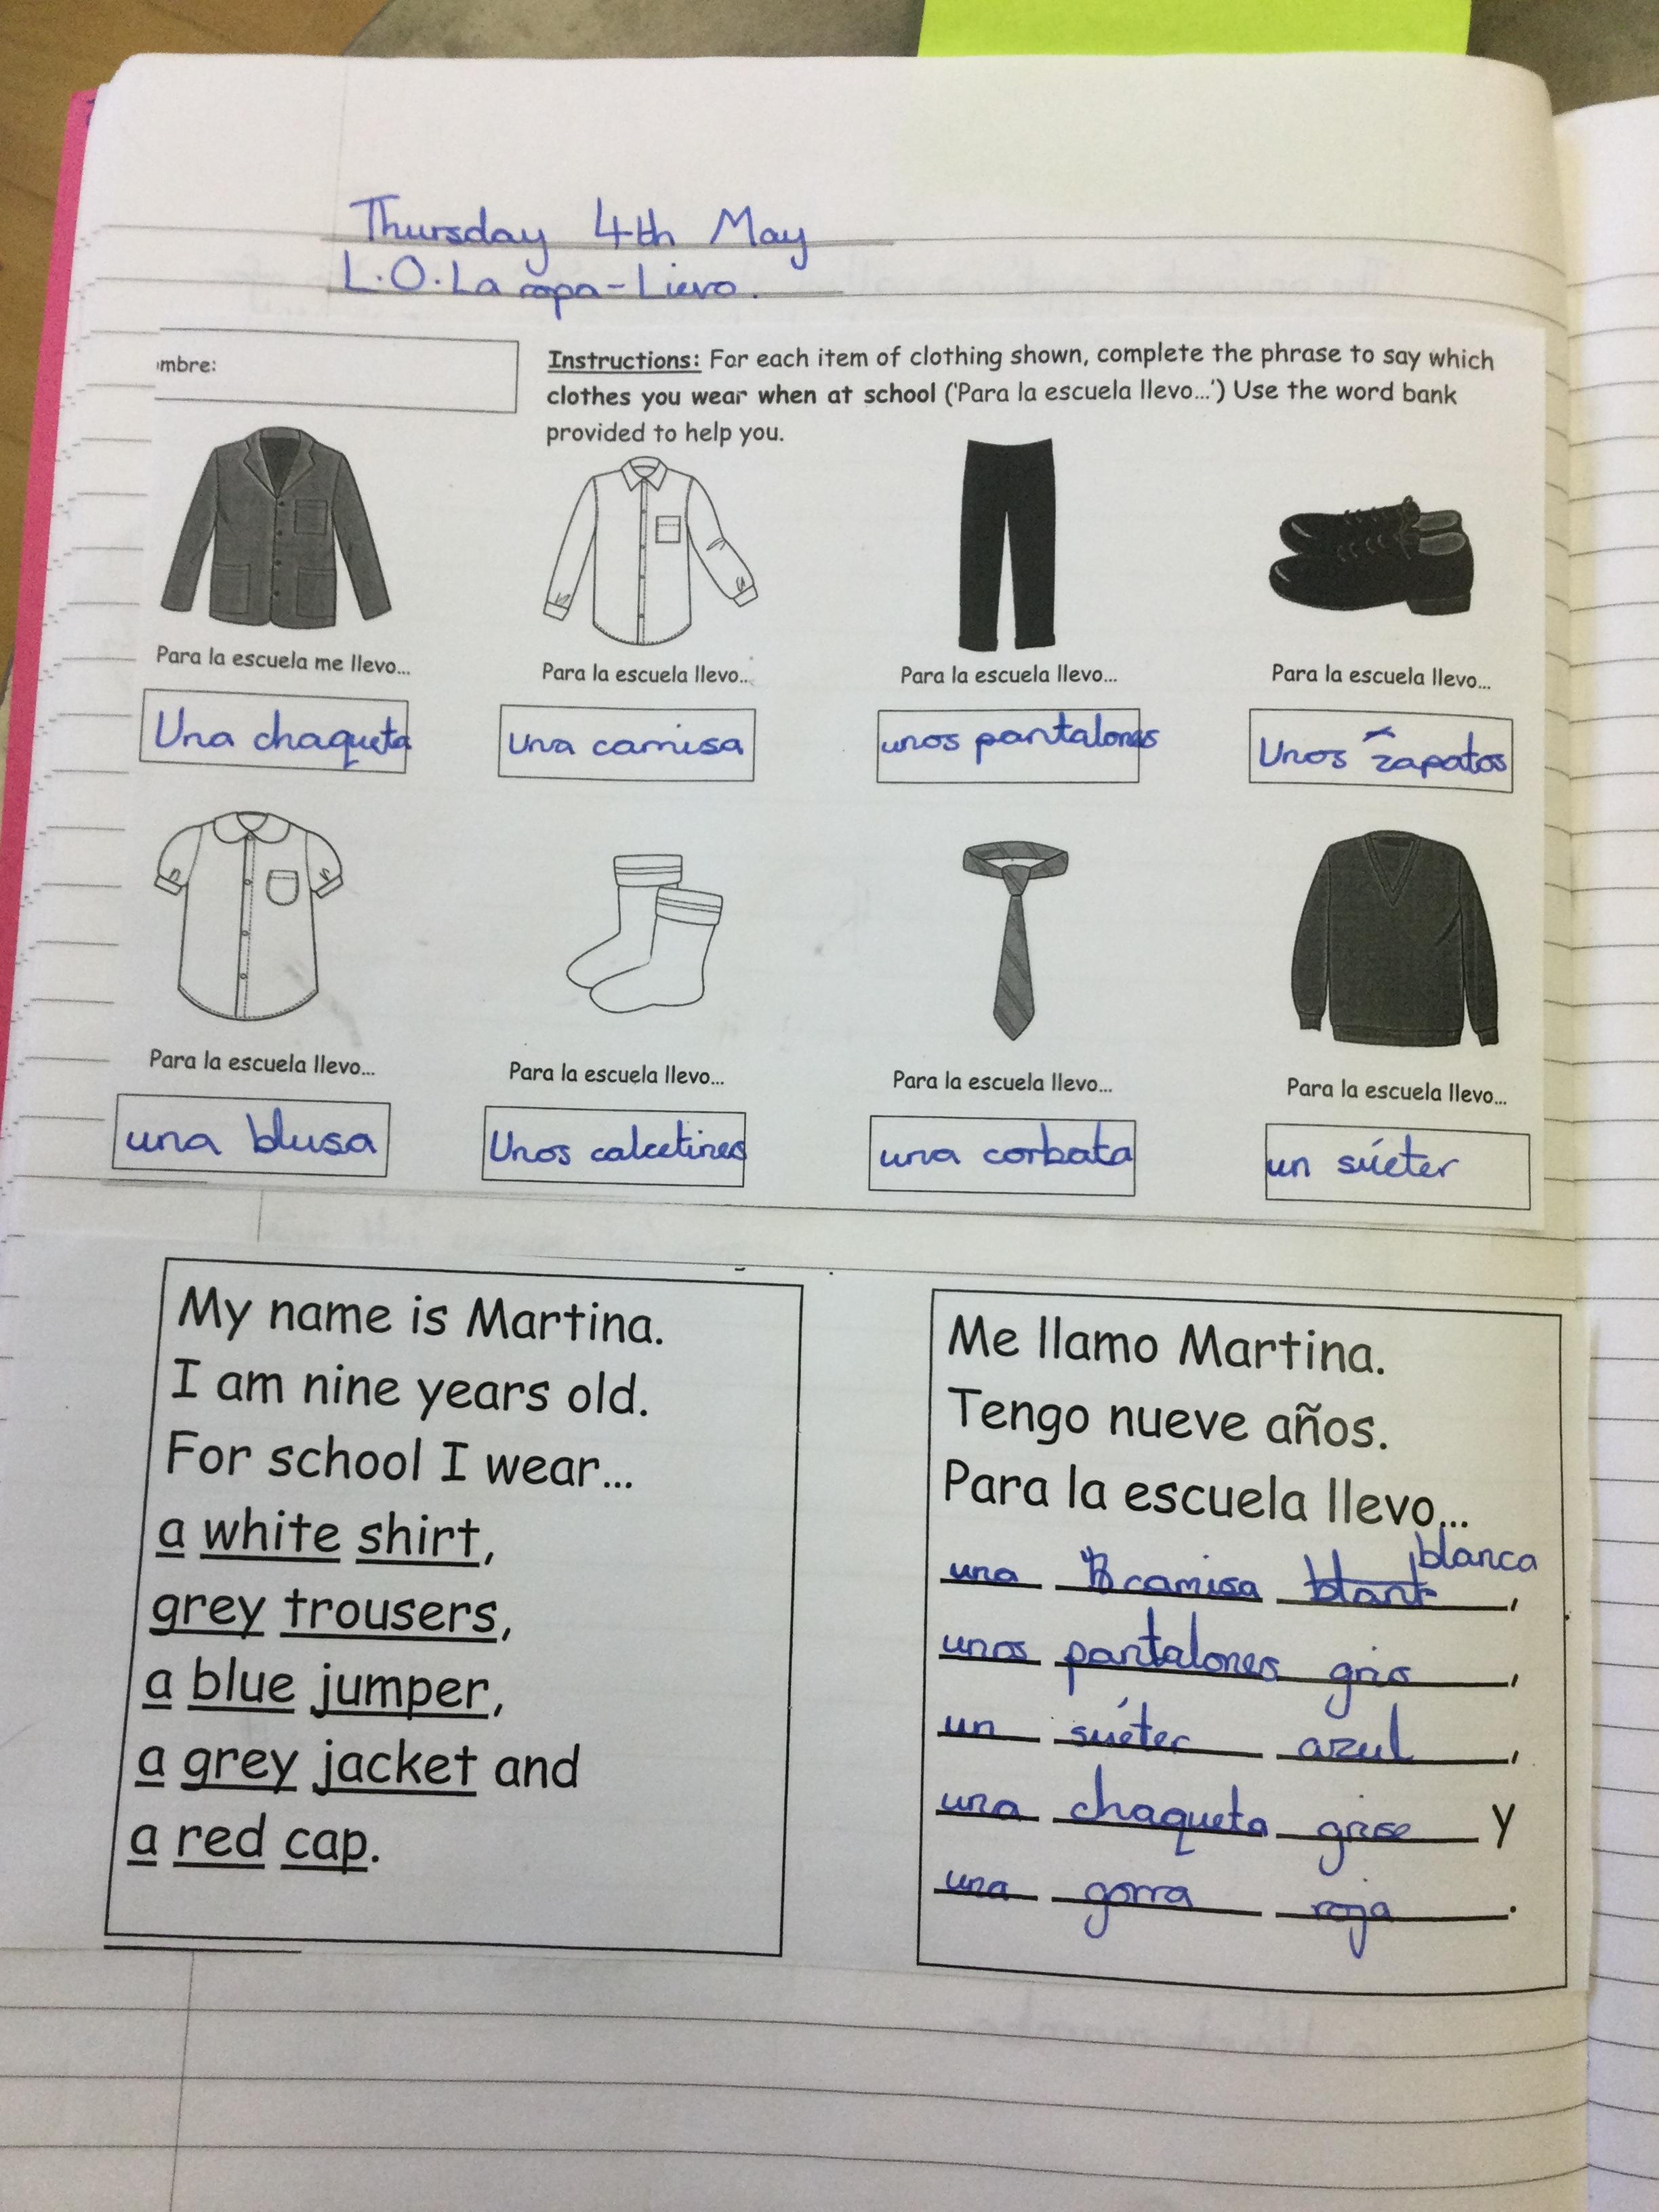 Thursday 4th May
L.O. La ropa - Lievo.
mbre:
Instructions: For each item of clothing shown, complete the phrase to say which
clothes you wear when at school ('Para la escuela llevo...') Use the word bank
provided to help you.
Para la escuela me llevo...
Para la escuela llevo...
Para la escuela llevo...
Para la escuela llevo...
Una chaqueta
una camisa
unos pantalones
Unos zapatos
Para la escuela llevo...
Para la escuela llevo...
Para la escuela llevo...
Para la escuela llevo...
una blusa
Unos calcetines
una corbata
un súeter
My name is Martina.
I am nine years old.
For school I wear...
a white shirt,
grey trousers,
a blue jumper,
a grey jacket and
a red cap.
Me llamo Martina.
Tengo nueve años.
Para la escuela llevo...
una camisa blanca,
unos pantalones gris,
un súeter azul,
una chaqueta y
una gorra roja.